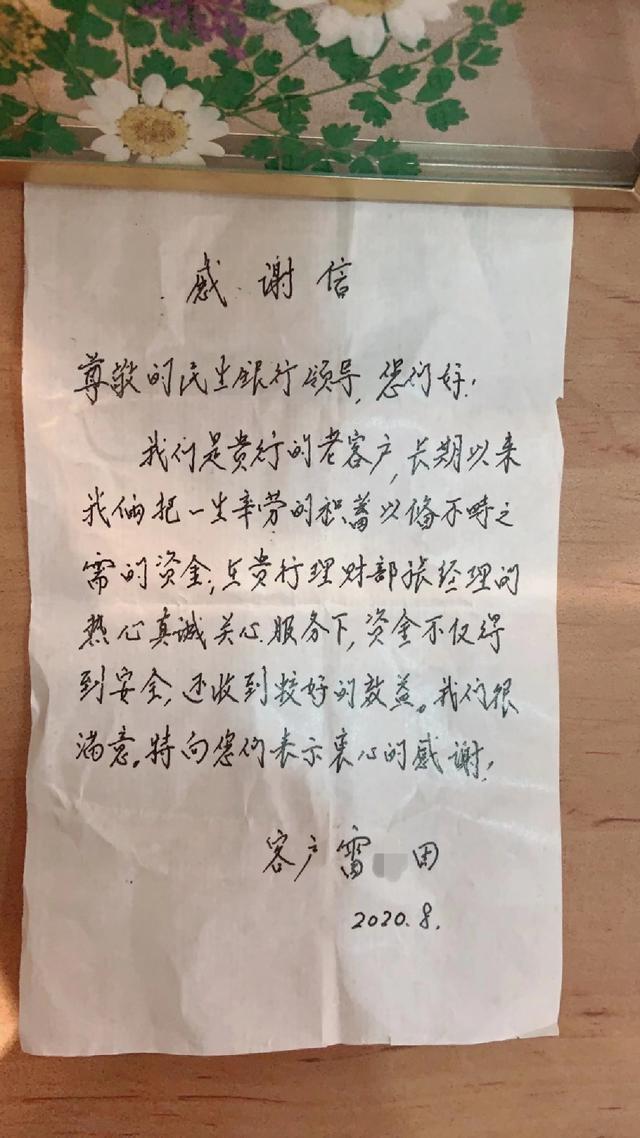 感谢信
尊敬的民生银行领导,您们好!
我们是贵行的老客户,长期以来
我俩把一生辛劳的积蓄以备不时之
需的资金;在贵行理财部张经理的
热心真诚关心服务下,资金不仅得
到安全,还收到较好的效益。我们很
满意。特向您们表示衷心的感谢!
客户雷 田
2020.8.